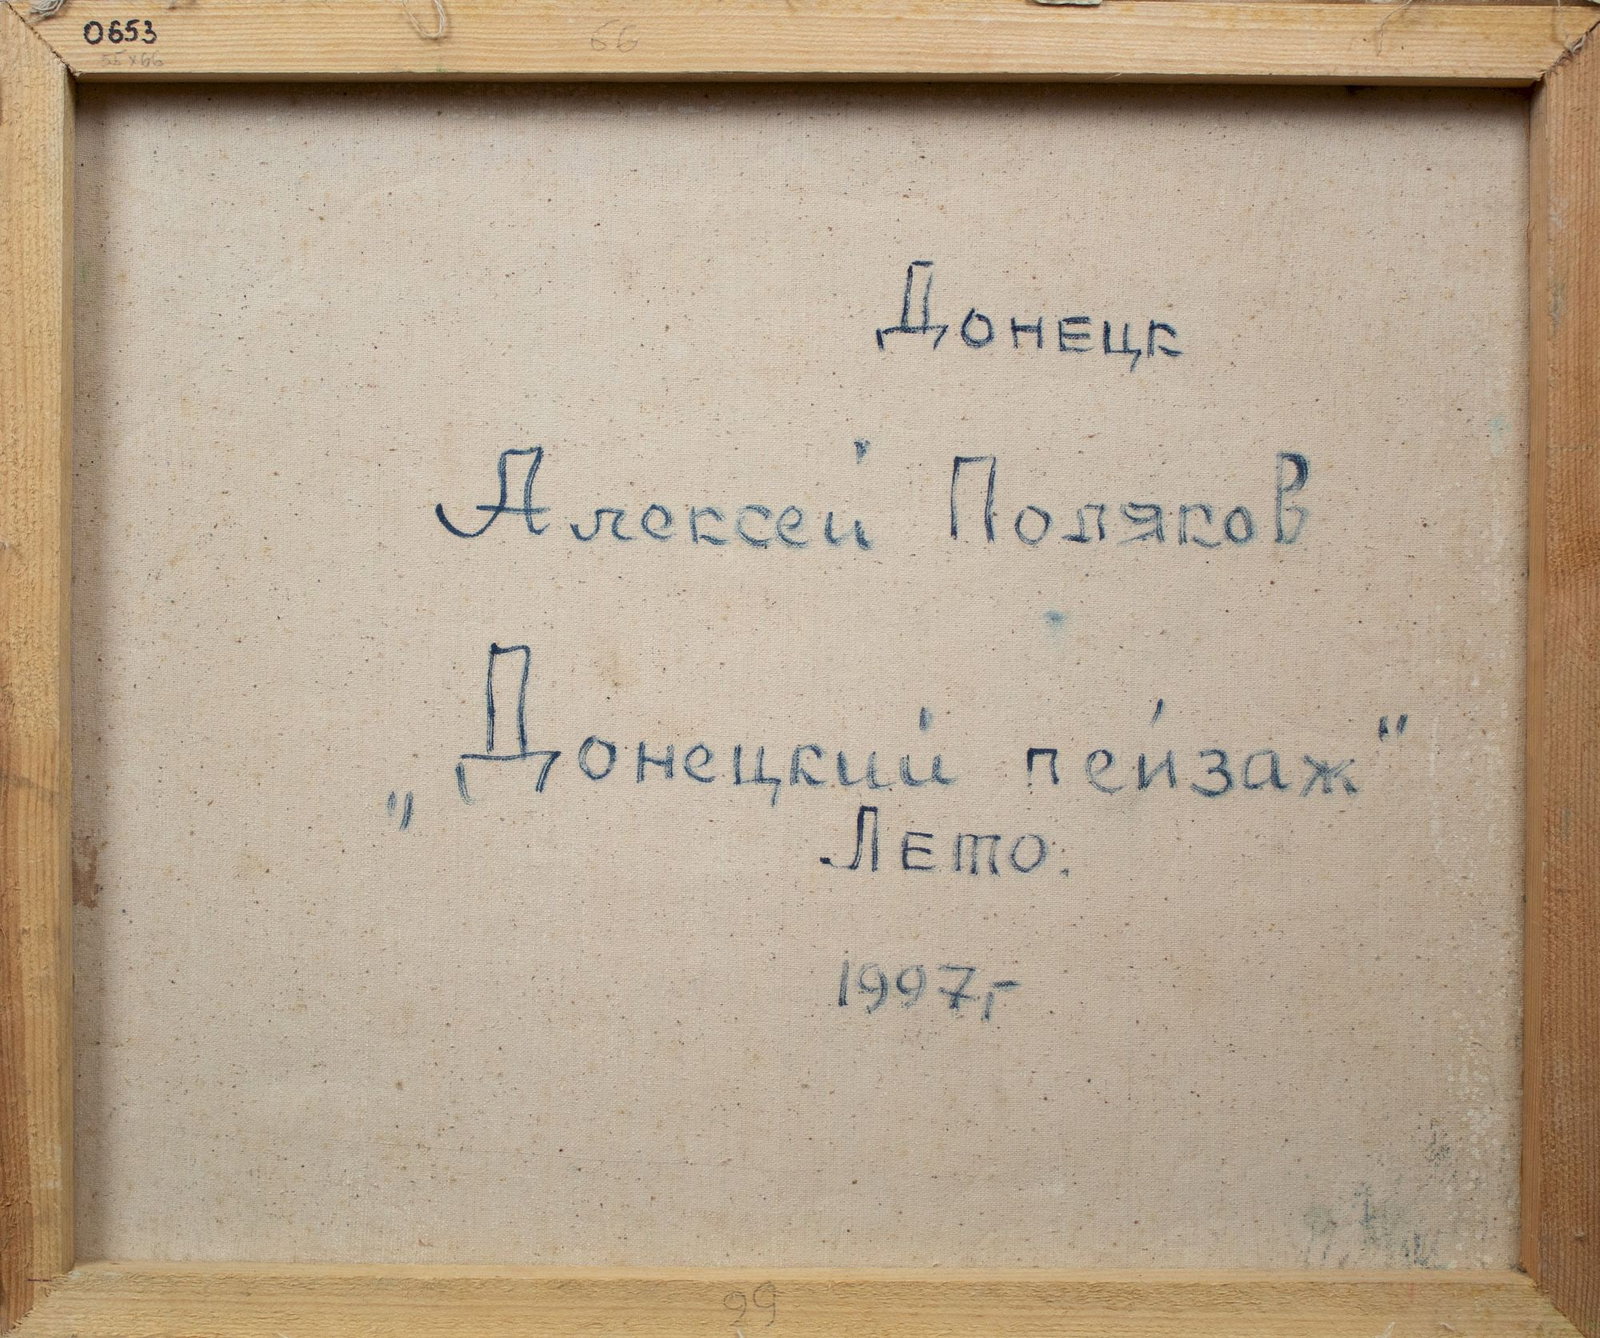 0653
55x66
66
Донецк
Алексей Поляков
„Донецкий пейзаж"
Лето.
1997г
66